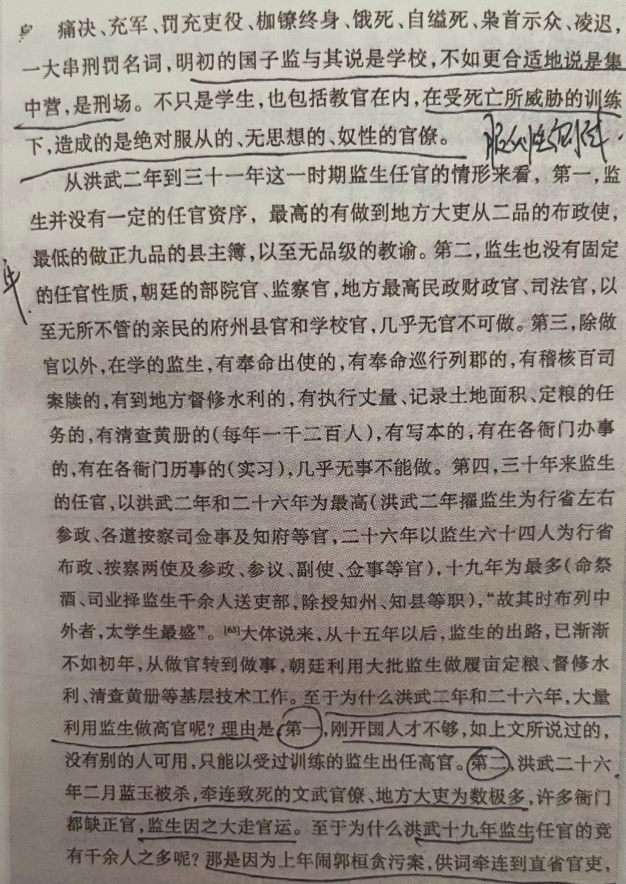 痛决、充军、罚充吏役、枷镣终身、饿死、自缢死、枭首示众、凌迟,
一大串刑罚名词,明初的国子监与其说是学校,不如更合适地说是集
中营,是刑场。不只是学生,也包括教官在内,在受死亡所威胁的训练
下,造成的是绝对服从的、无思想的、奴性的官僚。
从洪武二年到三十一年这一时期监生任官的情形来看,第一,监
生并没有一定的任官资序,最高的有做到地方大吏从二品的布政使,
最低的做正九品的县主簿,以至无品级的教谕。第二,监生也没有固定
的任官性质,朝廷的部院官、监察官,地方最高民政财政官、司法官,以
至无所不管的亲民的府州县官和学校官,几乎无官不可做。第三,除做
官以外,在学的监生,有奉命出使的,有奉命巡行列郡的,有稽核百司
案牍的,有到地方督修水利的,有执行丈量、记录土地面积、定粮的任
务的,有清查黄册的(每年一千二百人),有写本的,有在各衙门办事
的,有在各衙门历事的(实习),几乎无事不能做。第四,三十年来监生
的任官,以洪武二年和二十六年为最高(洪武二年擢监生为行省左右
参政、各道按察司佥事及知府等官,二十六年以监生六十四人为行省
布政、按察两使及参政、参议、副使、佥事等官),十九年为最多(命祭
酒、司业择监生千余人送吏部,除授知州、知县等职),“故其时布列中
外者,太学生最盛”。[63]大体说来,从十五年以后,监生的出路,已渐渐
不如初年,从做官转到做事,朝廷利用大批监生做履亩定粮、督修水
利、清查黄册等基层技术工作。至于为什么洪武二年和二十六年,大量
利用监生做高官呢?理由是,第一,刚开国人才不够,如上文所说过的,
没有别的人可用,只能以受过训练的监生出任高官。第二,洪武二十六
年二月蓝玉被杀,牵连致死的文武官僚、地方大吏为数极多,许多衙门
都缺正官,监生因之大走官运。至于为什么洪武十九年监生任官的竟
有千余人之多呢?那是因为上年闹郭桓贪污案,供词牵连到直省官吏,